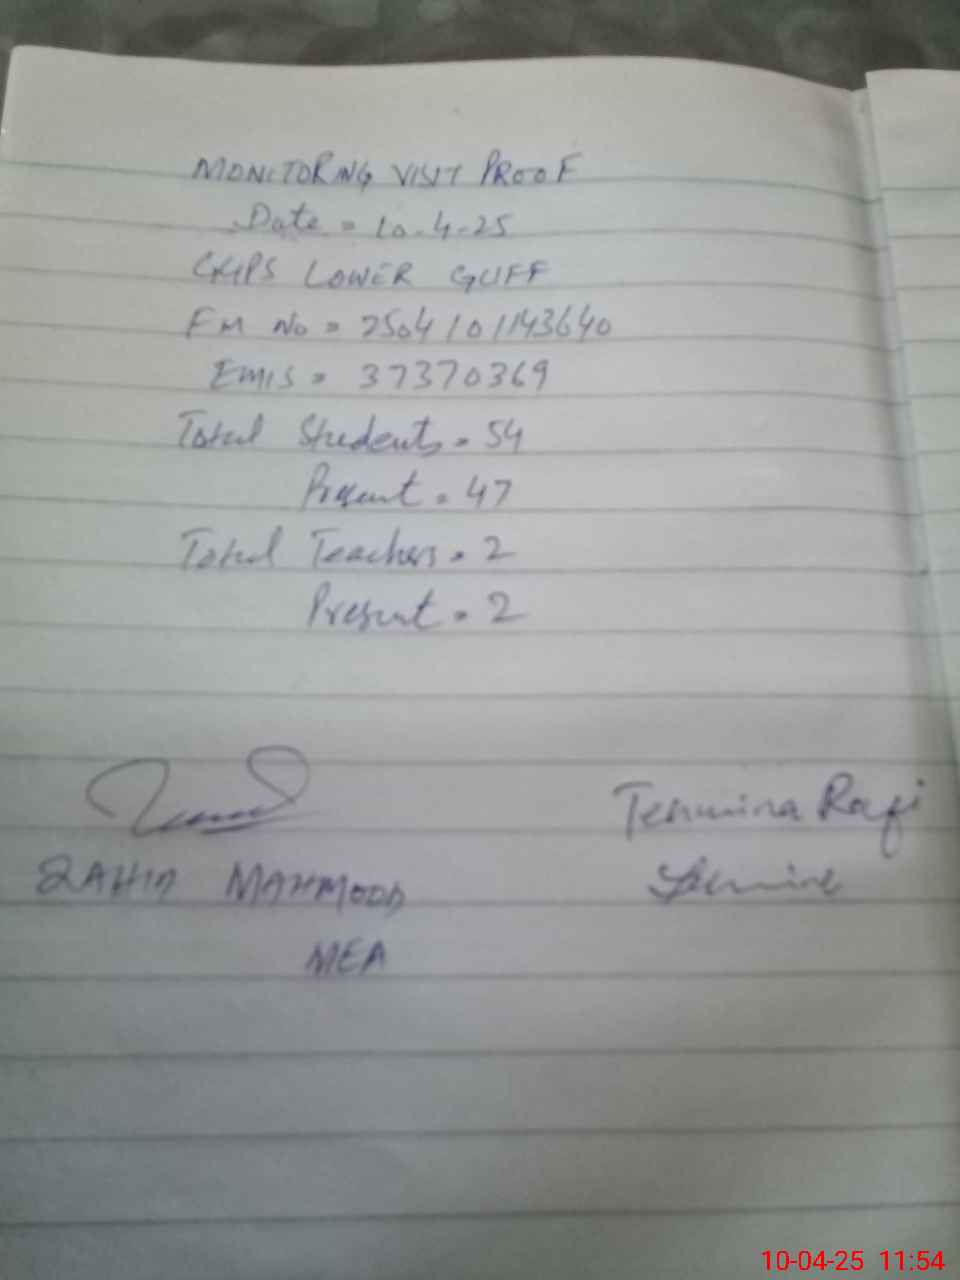 MONITORNG VISIT PROOF
Date = 10-4-25
GGPS LOWER GUFF
FM No = 2504101143640
EMIS = 37370369
Total Students = 54
Present = 47
Total Teachers = 2
Present = 2
Tehmina Rafi
ZAHID MAHMOOD
MEA
10-04-25 11:54